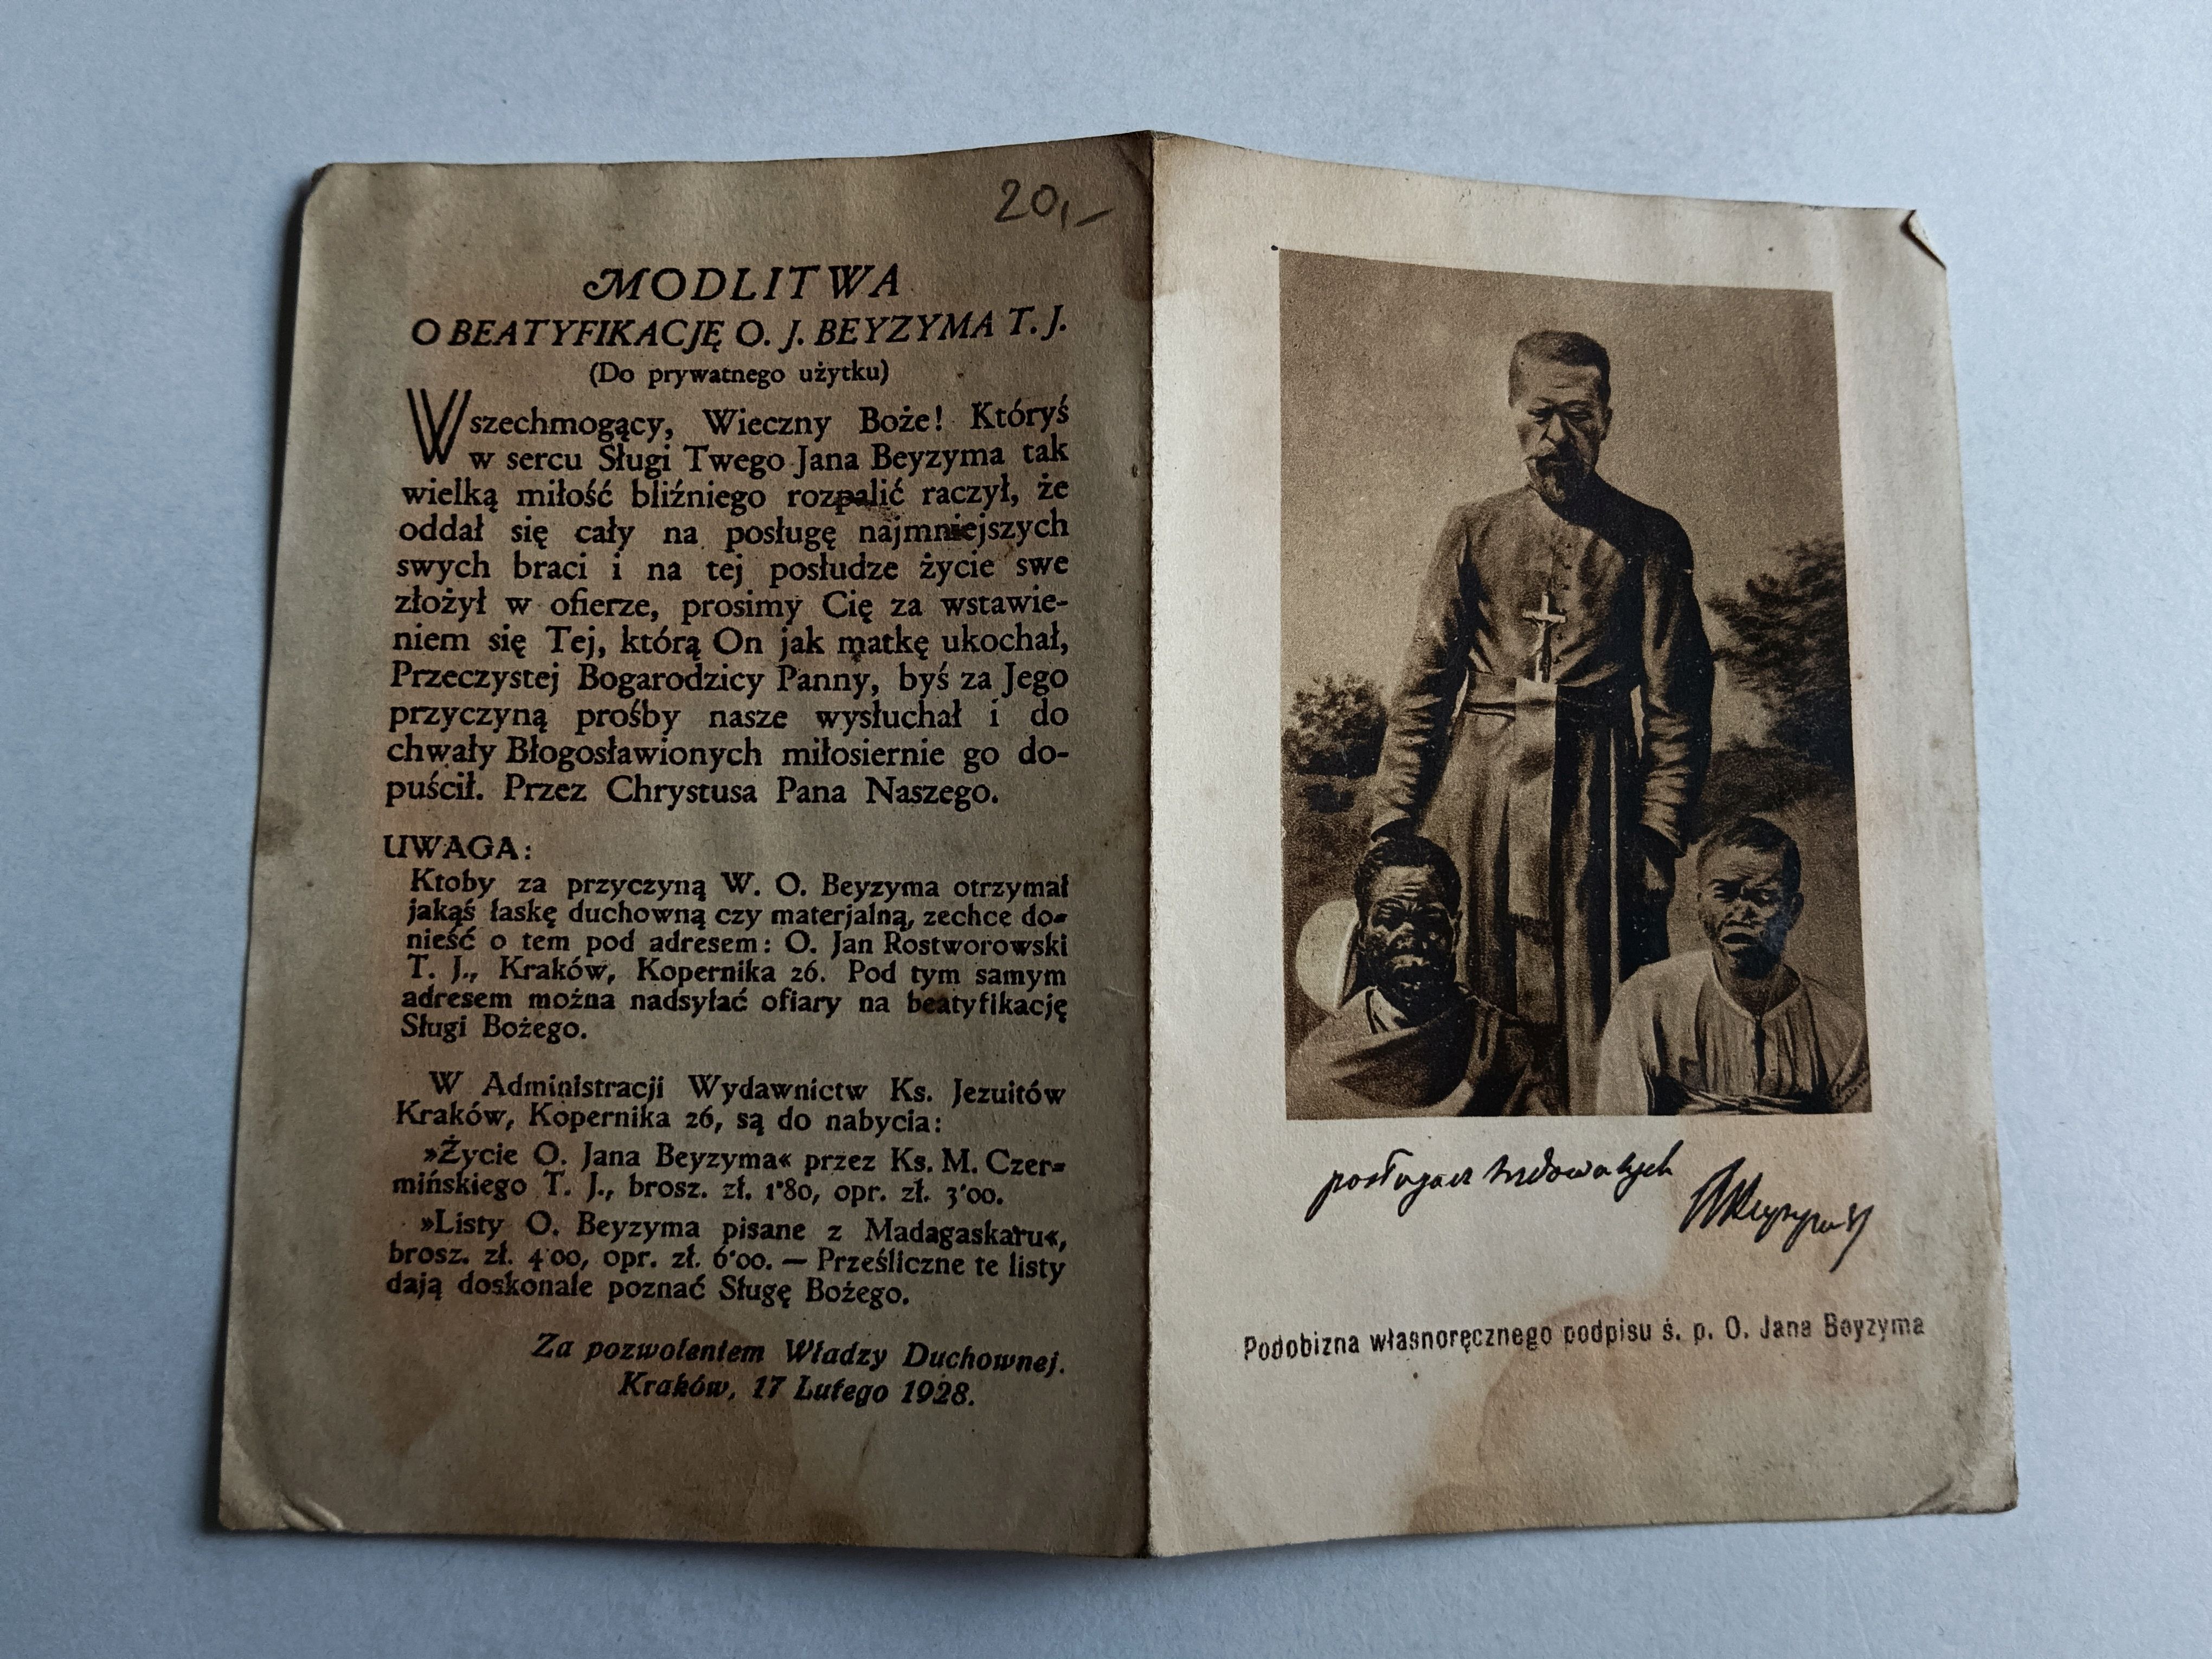 20,-
MODLITWA
O BEATYFIKACJĘ O. J. BEYZYMA T. J.
(Do prywatnego użytku)
Wszechmogący, Wieczny Boże! Któryś
w sercu Sługi Twego Jana Beyzyma tak
wielką miłość bliźniego rozpalić raczył, że
oddał się cały na posługę najmniejszych
swych braci i na tej posłudze życie swe
złożył w ofierze, prosimy Cię za wstawie-
niem się Tej, którą On jak matkę ukochał,
Przeczystej Bogarodzicy Panny, byś za Jego
przyczyną prośby nasze wysłuchał i do
chwały Błogosławionych miłosiernie go do-
puścił. Przez Chrystusa Pana Naszego.
UWAGA:
Ktoby za przyczyną W. O. Beyzyma otrzymał
jakąś łaskę duchowną czy materjalną, zechce do-
nieść o tem pod adresem: O. Jan Rostworowski
T. J., Kraków, Kopernika 26. Pod tym samym
adresem można nadsyłać ofiary na beatyfikację
Sługi Bożego.
W Administracji Wydawnictw Ks. Jezuitów
Kraków, Kopernika 26, są do nabycia:
»Życie O. Jana Beyzyma« przez Ks. M. Czer-
mińskiego T. J., brosz. zł. 1'80, opr. zł. 3'00.
»Listy O. Beyzyma pisane z Madagaskaru«,
brosz. zł. 4'00, opr. zł. 6'00. — Prześliczne te listy
dają doskonale poznać Sługę Bożego.
Za pozwoleniem Władzy Duchownej.
Kraków, 17 Lutego 1928.
posługacz trędowatych
MBeyzym TJ
Podobizna własnoręcznego podpisu ś. p. O. Jana Beyzyma